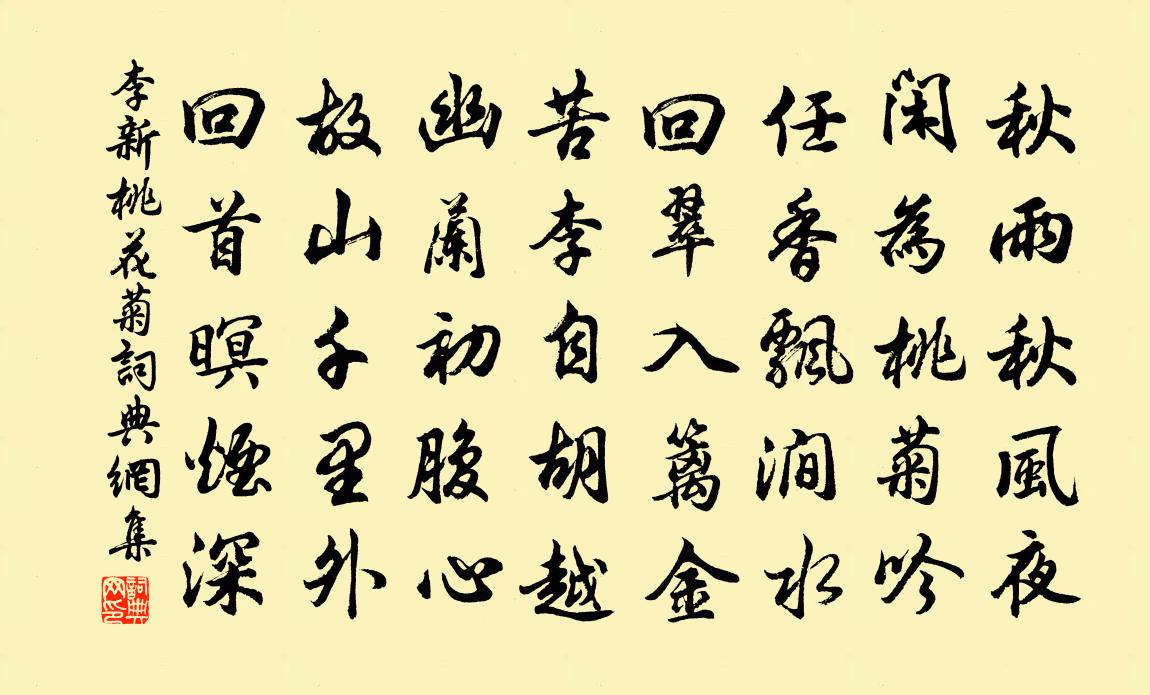 秋雨秋風夜
閑為桃菊吟
任香飄澗水
回翠入籬金
苦李自胡越
幽蘭初腹心
故山千里外
回首暝煙深
李新桃花菊詞典網集
詞典网印